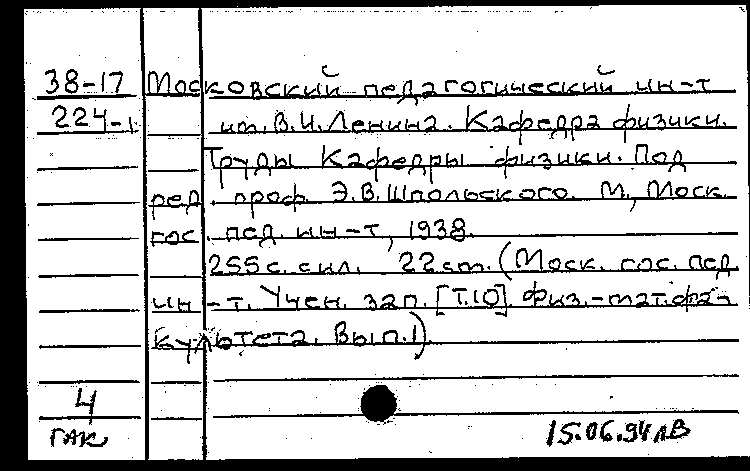 38-17 Московский педагогический ин-т
224-1 им. В.И. Ленина. Кафедра физики.
Труды Кафедры физики. Под
ред. проф. Э.В. Шпольского. М., Моск.
гос. пед. ин-т, 1938.
255 с. с ил. 22 см. (Моск. гос. пед
ин-т. Учен. зап. [Т.10]. Физ.-мат. фа-
культета. Вып.1).
4
ГАК 15.06.94 лВ